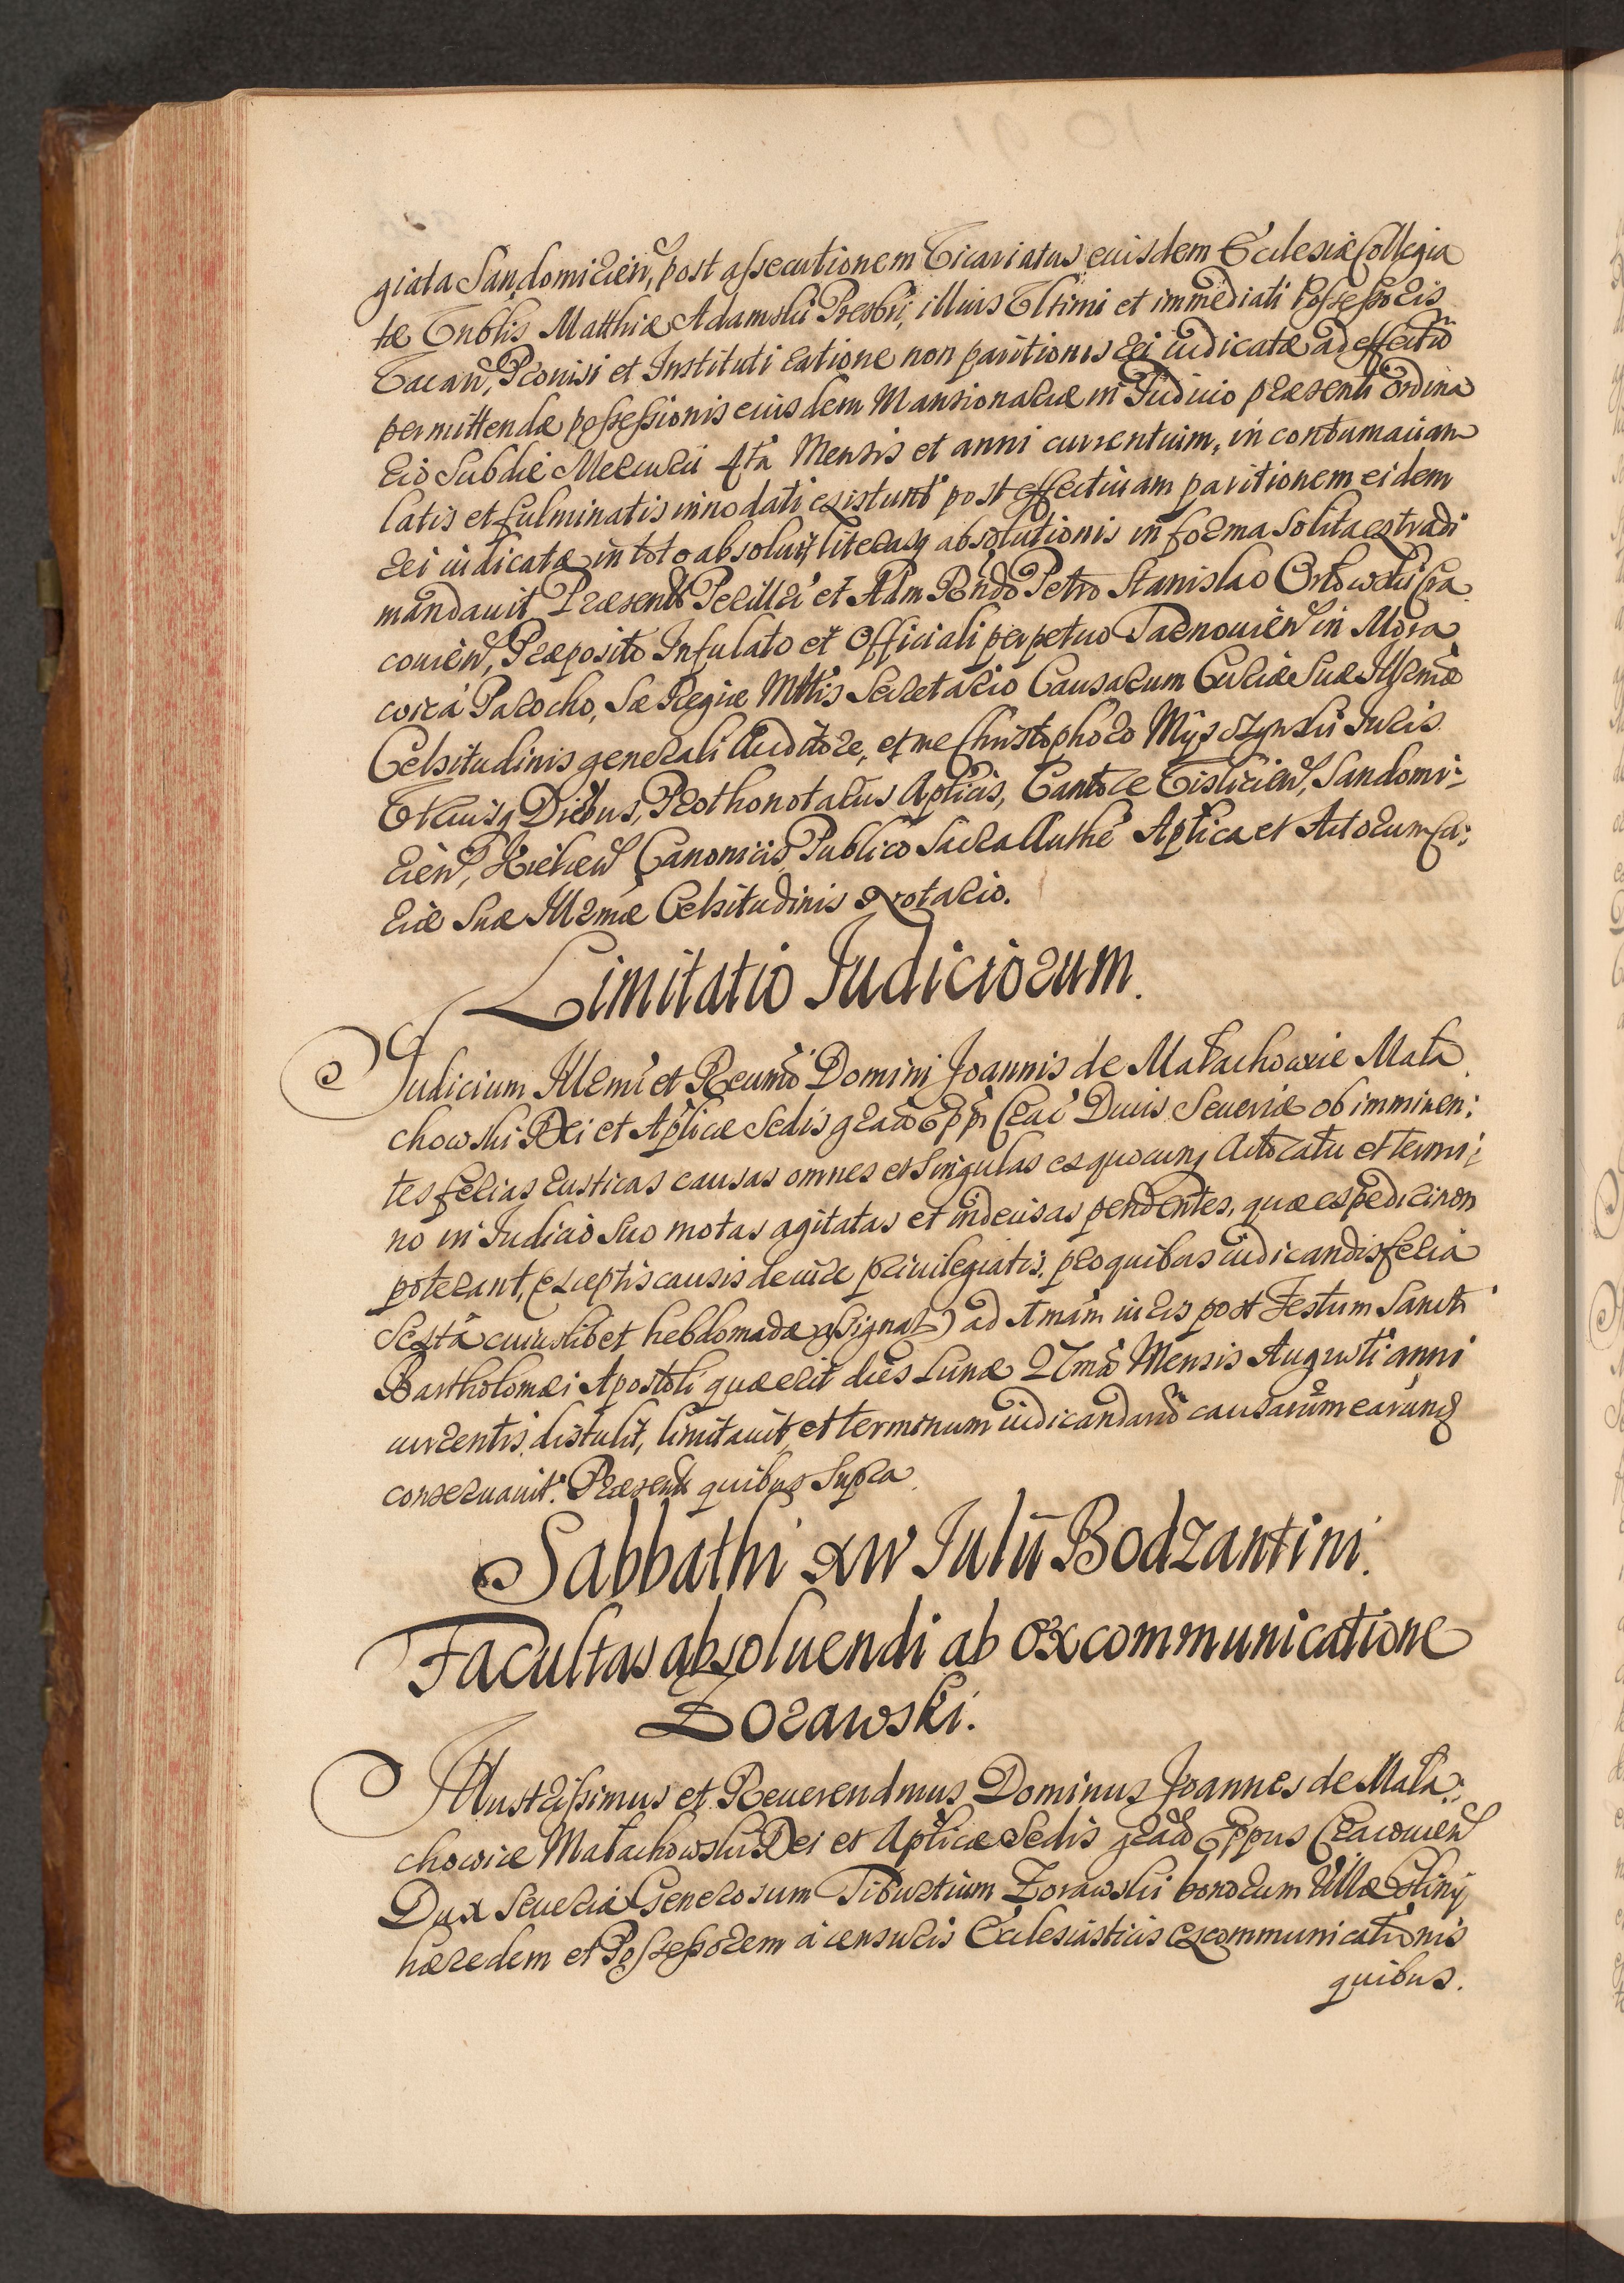 giata Sandomirien, post assecutionem Vicariatus eiusdem Ecclesiæ Collegia
tæ Matthiæ Adamski Presbri, illius Vltimi et immediati Possessoris
Vacan, Prouisi et Instituti ratione non paritionis rei iudicatæ ad effectũ
permittendæ possessionis eiusdem Mansionariæ in Iudicio præsenti ordina
rio Sub die Mercurii 4ta Mensis et anni currentium, in contumaciam
latis et fulminatis innodati existunt post effectiuam paritionem eidem
rei iudicatæ in toto absoluit, literasq absolutionis in forma solita extradi
mandauit Præsentib Perillri et Adm Rndo Petro Stanislao Orłowski Cra
couien, Præposito Infulato et Officiali perpetuo Tarnouien in Mora
wica Parocho, Sæ Regiæ Mttis Secretario Causarum Curiæ Suæ Illrmæ
Celsitudinis generali Auditore, et me Christophoro Myszynski Iuris
Vtriusq Dribus, Prothonotarius Aplicis, Cantore Vislicien, Sandomi:
rien, Kielcen Canonicis, Publico Sacra Authe Aplica et Actorum Cu:
riæ Suæ Illrmæ Celsitudinis Notario.
Limitatio Iudiciorum.
Iudicium Illrmi et Reumi Domini Joannis de Małachowice Mała
chowski Dei et Aplicæ Sedis gratia Eppi Crac Ducis Seueriæ ob imminen:
tes ferias rusticas causas omnes et singulas ex quocunq actoratu et termi:
no in Iudicio suo motas agitatas et indecisas pendentes, quæ expediri non
poterant, (exceptis causis de iure priuilegiatis, pro quibus iudicandis feria
Sexta cuiuslibet hebdomadæ assignat) ad 1mam iuris post Festum Sancti
Bartholomæi Apostoli quæ erit dies Lunæ 27ma Mensis Augusti anni
currentis distulit, limitauit, et terminum iudicandarũ causarum earunq
conseruauit. Præsentib quibus supra.
Sabbathi XIV Iulii Bodzantini.
Facultas absoluendi ab excommunicatione
Zorawski.
Illustrissimus et Reuerendmus Dominus Joannes de Mała:
chowice Małachowski Dei et Aplicæ Sedis gratia Eppus Cracouien
Dux Seueriæ Generosum Tiburtium Zorawski bonorum Villæ
hæredem et Possessorem à censuris Ecclesiasticis excommunicationis
quibus.